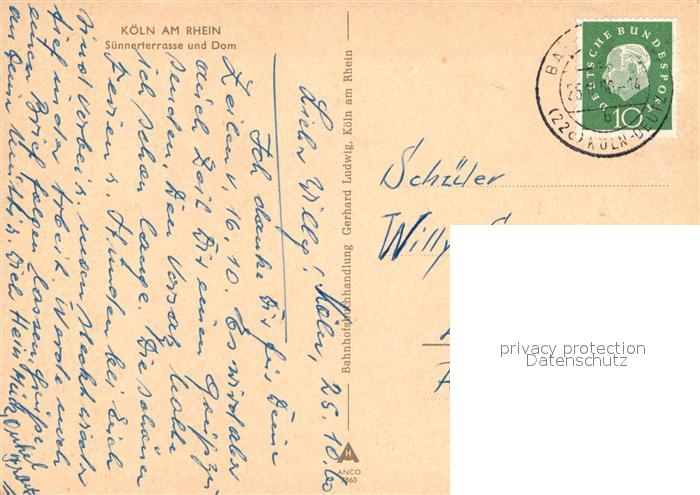 KÖLN AM RHEIN
Sünnerterrasse und Dom
Köln, 25. 10. 60
Lieber Willy!
Ich danke Dir für Deine
Zeilen v. 16. 10. Es wird aber
auch Zeit Dir einen Gruß zu
senden. Den Vorsatz hatte
ich schon lange. Die schönen
Ferien u. Stunden bei Euch
sind vorbei u. man steckt wieder
tief in der Arbeit. Werde noch
einen Brief folgen lassen. Grüße
an Deine u. Dich
Bahnhofsbuchhandlung Gerhard Ludwig, Köln am Rhein
ANCO
DEUTSCHE BUNDESPOST
10
(22c) KÖLN-DEUTZ
b
Schüler
Willy
privacy protection
Datenschutz